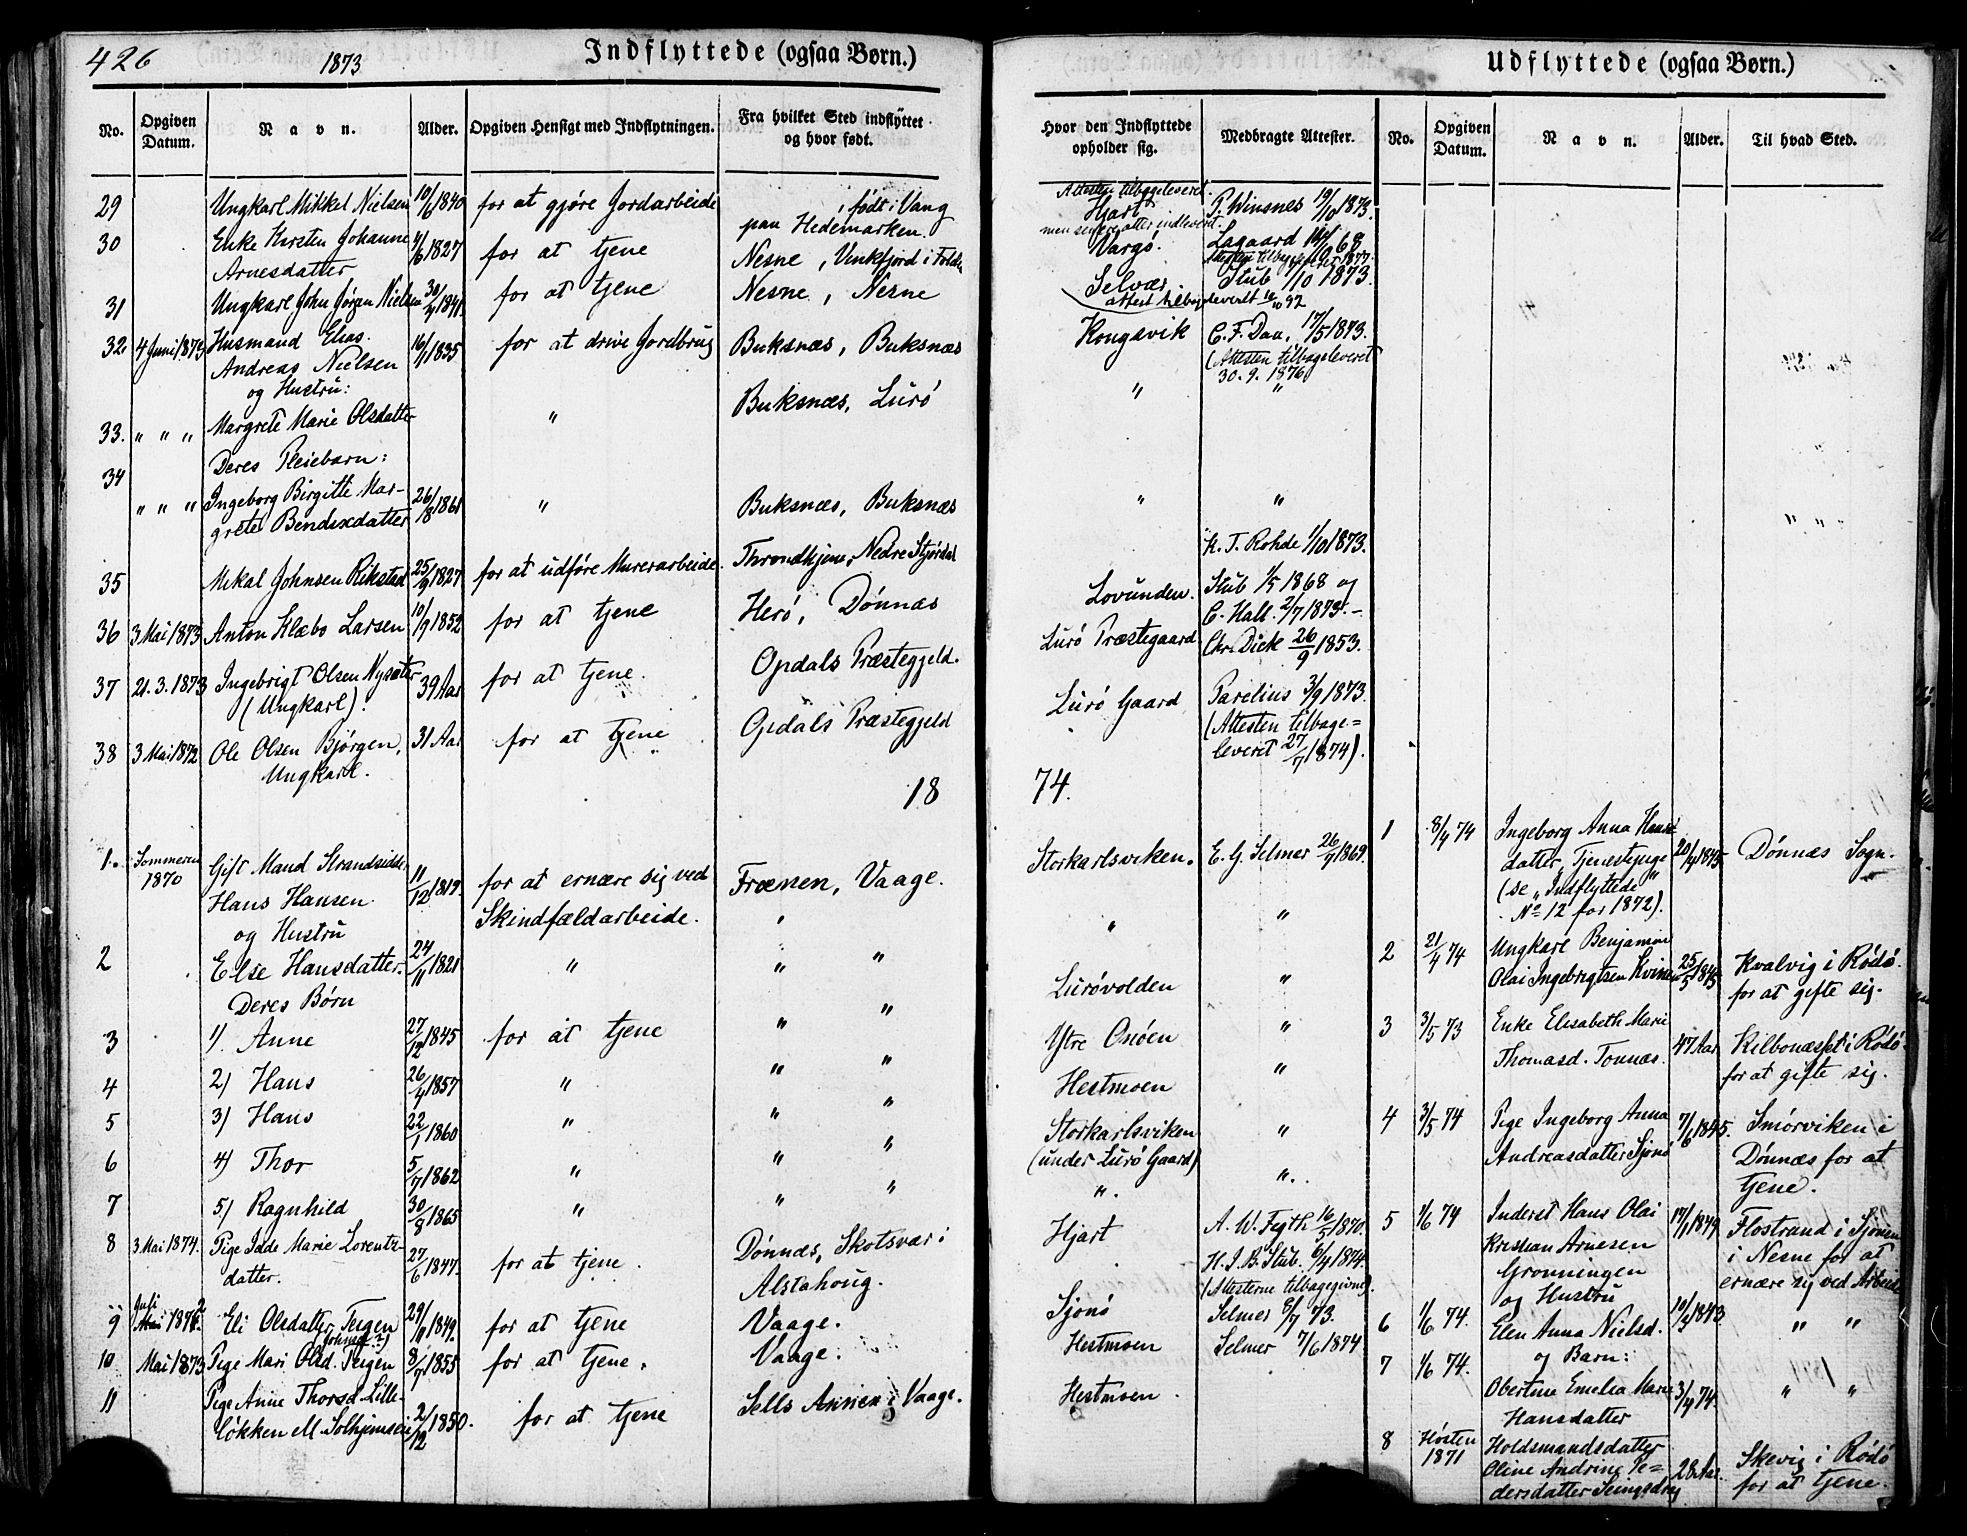 426
1873
Indflyttede (ogsaa Børn.)
No.
Opgiven Datum.
Navn.
Alder.
Opgiven Hensigt med Indflytningen.
Fra hvilket Sted indflyttet og hvor født.
29 Ungkarl Mikkel Nielsen 10/6 1840 for at gjøre Jordarbeide , født i Vang
paa Hedemarken.
30 Enke Kirsten Johanne 4/6 1827 for at tjene Nesne,
Arnesdatter
31 Ungkarl John Jørgen Nielsen 1841. for at tjene Nesne, Nesne
32. 4 Juni 1873 Husmand Elias 16/1 1835 for at drive Jordbrug Buksnæs, Buksnæs
Andreas Nielsen
og Hustru:
33. " " " Margrete Marie Olsdatter " Buksnæs, Lurö
34 Deres Pleiebarn:
" " " Ingeborg Birgitte Mar- 26/8 1861 " Buksnæs, Buksnæs
grete Bendixdatter
35 Mikal Johnsen Rikstad 25/9 1827 for at udföre Murerarbeide. Throndhjem, Nedre Stjørdal
36 3 Mai 1873 Anton Klæbo Larsen 10/9 1852 for at tjene Herö, Dönnæs
37 21. 3. 1873 Ingebrigt Olsen Nysæter 39 Aar for at tjene. Opdals Præstegjeld.
(Ungkarl).
38 3 Mai 1872 Ole Olsen Bjørgen, 31 Aar for at tjene Opdals Præstegjeld
Ungkarl.
18
1. Sommeren 1870 Gift Mand Strandsidder 11/12 1819 for at ernære sig ved Frænen, Vaage.
Hans Hansen Skindfældarbeide.
og Hustru "
2 Else Hansdatter. 24/11 1821 " " "
Deres Børn
3 1). Anne 27/12 1845 for at tjene " "
4 2) Hans 26/4 1857 " " "
5 3) Hans 22/1 1860 " " "
6 4) Thor 5/7 1862 " " "
7 5) Ragnhild 30/8 1865 " " "
8 3 Mai 1874. Pige Idde Marie Lorents- 27/6 1847. for at tjene. Dönnæs, Skotsvær i
datter. Alstahoug.
9 Juli Eli Olsdatter Teigen 29/9 1849. for at tjene Vaage.
10. Mai 1873 Pige Mari Olsd. Teigen 8/7 1855 for at tjene. Vaage.
11 Pige Anne Thorsd. Lille- 2/12 1850. for at tjene Sells Annex i Vaage.
løkken ell.
Udflyttede (ogsaa Børn.)
Hvor den Indflyttede opholder sig.
Medbragte Attester.
No.
Opgiven Datum.
Navn.
Alder.
Til hvad Sted.
Attesten tilbageleveret.
Hjart P. Winsnes 19/10 1873.
men senere atter indleveret.
Vargö. Lagaard
Attesten tilbageleveret 1877.
Selvær. Stub 1/10 1873.
attest tilbageleveret
Kongsvik C. F. Daa, 17/5 1873.
(Attesten tilbageleveret
30. 9. 1876
" "
" "
K. T. Rohde 1/10 1873.
Lovunden. Stub 1/5 1868 og
C. Hall. 2/7 1873.-
Lurö Præstegaard Chr. Dick 26/9 1853.
Lurö Gaard Parelius 3/9 1873.
(Attesten tilbage=
leveret 27/7 1874).
74.
Storkarlsviken. E. G. Selmer 26/9 1869.
" "
Lurövolden "
Ytre Onöen "
Hestmoen "
Storkarlsviken "
(under Lurö Gaard) "
".
Hjart A. W. Feyth 16/5 1870.
H. J. B. Stub. 6/4 1874.
(Attesterne tilbagegivne).
Sjonö Selmer 6/7 73.
Hestmoen Selmer 7/6 1874
Hestmoen.
1 8/4 74 Ingeborg Anna Hans-
datter, Tjenestepige 20/4 1845 Dönnæs Sogn.
(se "Indflyttede"
No 12 for 1872).
2 21/4 74 Ungkarl Benjamin
Olai Ingebrigtsen Kvinen 25/5 1845 Kvalvig i Rödö.
for at gifte sig.
3 3/5 73 Enke Elisabeth Marie
Thomasd. Tonnæs. 47 Aar Kilbonæsset i Rödö
for at gifte sig.
4 3/5 74 Pige Ingeborg Anna 7/6 1845. Smörviken i
Andreasdatter Sjonö Dönnæs for at
tjene.
5 1/6 74 Inderst Hans Olai 17/1 1849 Flostrand i Sjonen
Kristian Arnesen i Nesne for at
Gronningen ernære sig ved Arbeide
og Hustru
6 1/6 74. Elen Anna Nielsd. 1843 " "
og Barn:
7 1/6 74. Obertine Emelia Marie 3/4 74. " "
Hansdatter
8 Høsten 1871 Holdsmandsdatter
Oline Andrine Pe= 28 Aar. Skevig i Rödö
dersdatter for at tjene.